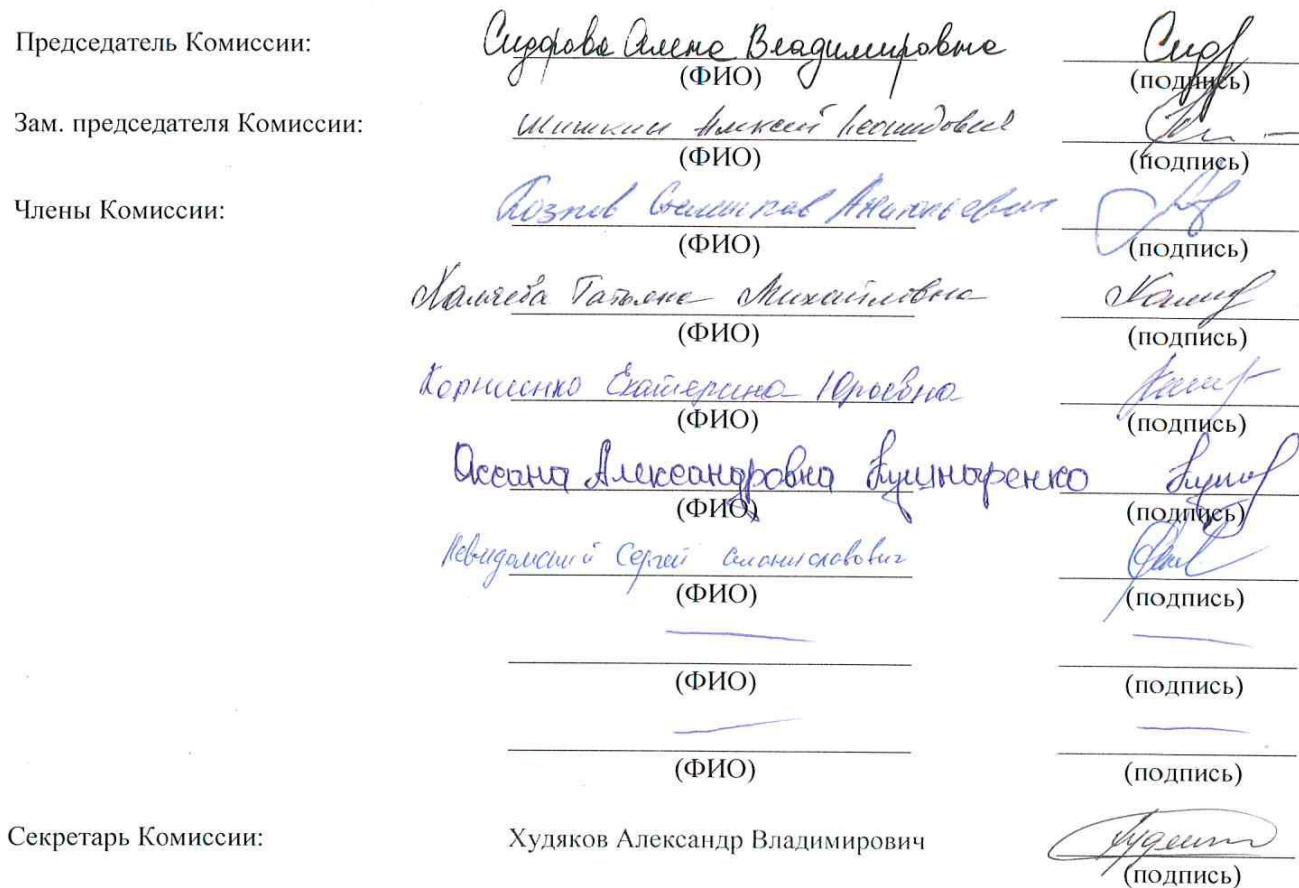 Председатель Комиссии: Сидорова Алена Владимировна
(ФИО) (подпись)
Зам. председателя Комиссии: Шишкин Алексей Леонидович
(ФИО) (подпись)
Члены Комиссии:
(ФИО) (подпись)
Татьяна Михайловна
(ФИО) (подпись)
Корниенко Екатерина Юрьевна
(ФИО) (подпись)
Оксана Александровна Кушнаренко
(ФИО) (подпись)
Сергей Станиславович
(ФИО) (подпись)
(ФИО) (подпись)
(ФИО) (подпись)
Секретарь Комиссии: Худяков Александр Владимирович
(подпись)